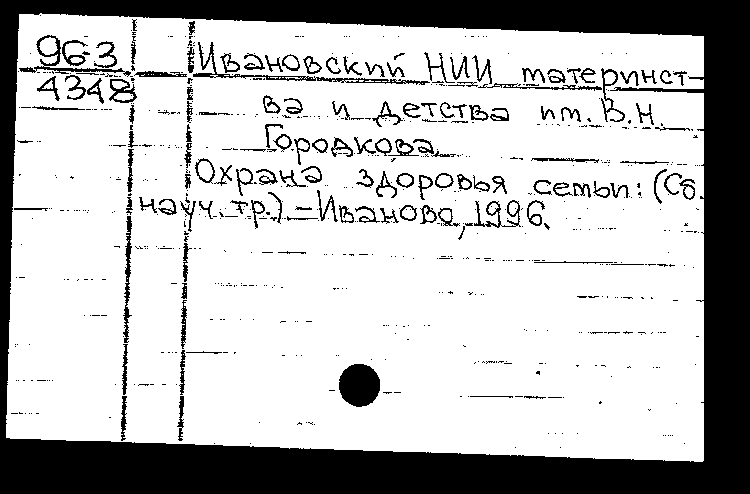 96-3
4348
Ивановский НИИ материнст-
ва и детства им. В.Н.
Городкова.
Охрана здоровья семьи: (Сб.
науч. тр.) – Иваново, 1996.